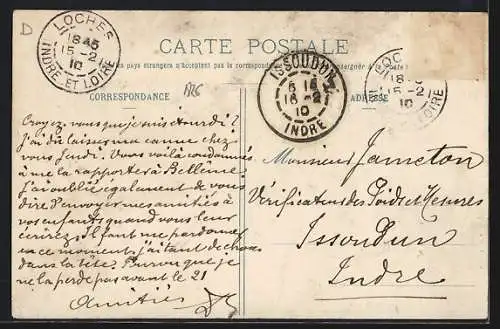 D
LOCHES
18 45
15 - 2
10
INDRE-ET-LOIRE
CARTE POSTALE
pays étrangers n'acceptent pas la correspondance
CORRESPONDANCE
ADRESSE
ISSOUDUN
6 15
16 - 2
10
INDRE
18
15 - 2
10
LOIRE
Croyez-vous que je suis étourdi?
J'ai dû laisser ma canne chez
vous Jeudi. Vous voilà condamnés
à me la rapporter à Bellême.
J'ai oublié également de vous
dire d'envoyer mes amitiés à
vos enfants quand vous leur
écrirez. Il faut me pardonner
en ce moment j'ai tant de choses
dans la tête. Pourvu que je
ne la perde pas avant le 21
Amitiés
Monsieur Jametou
Vérificateur des Poids et Mesures
Issoudun
Indre